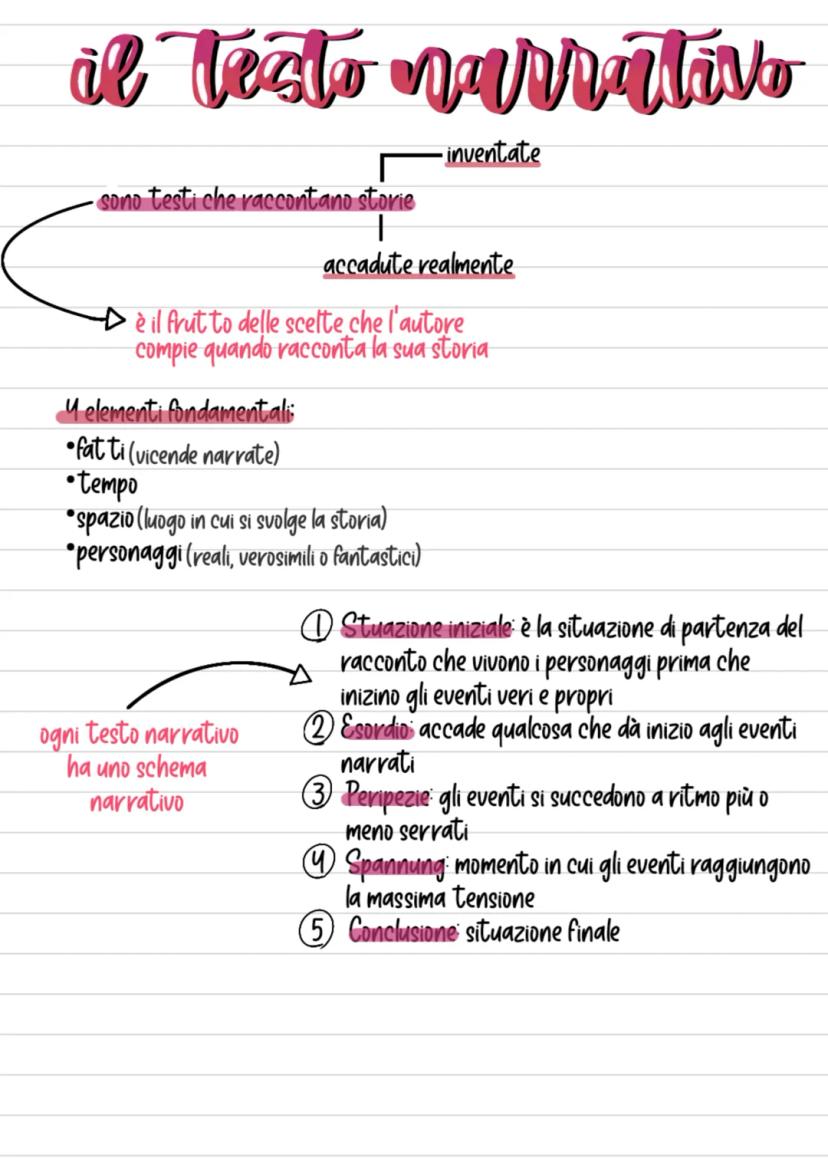 il testo narrativo
inventate
sono testi che raccontano storie
accadute realmente
è il frutto delle scelte che l'autore
compie quando racconta la sua storia
4 elementi fondamentali:
•fatti (vicende narrate)
•tempo
•spazio (luogo in cui si svolge la storia)
•personaggi (reali, verosimili o fantastici)
ogni testo narrativo
ha uno schema
narrativo
1 Stuazione iniziale: è la situazione di partenza del
racconto che vivono i personaggi prima che
inizino gli eventi veri e propri
2 Esordio: accade qualcosa che dà inizio agli eventi
narrati
3 Peripezie: gli eventi si succedono a ritmo più o
meno serrati
4 Spannung: momento in cui gli eventi raggiungono
la massima tensione
5 Conclusione: situazione finale